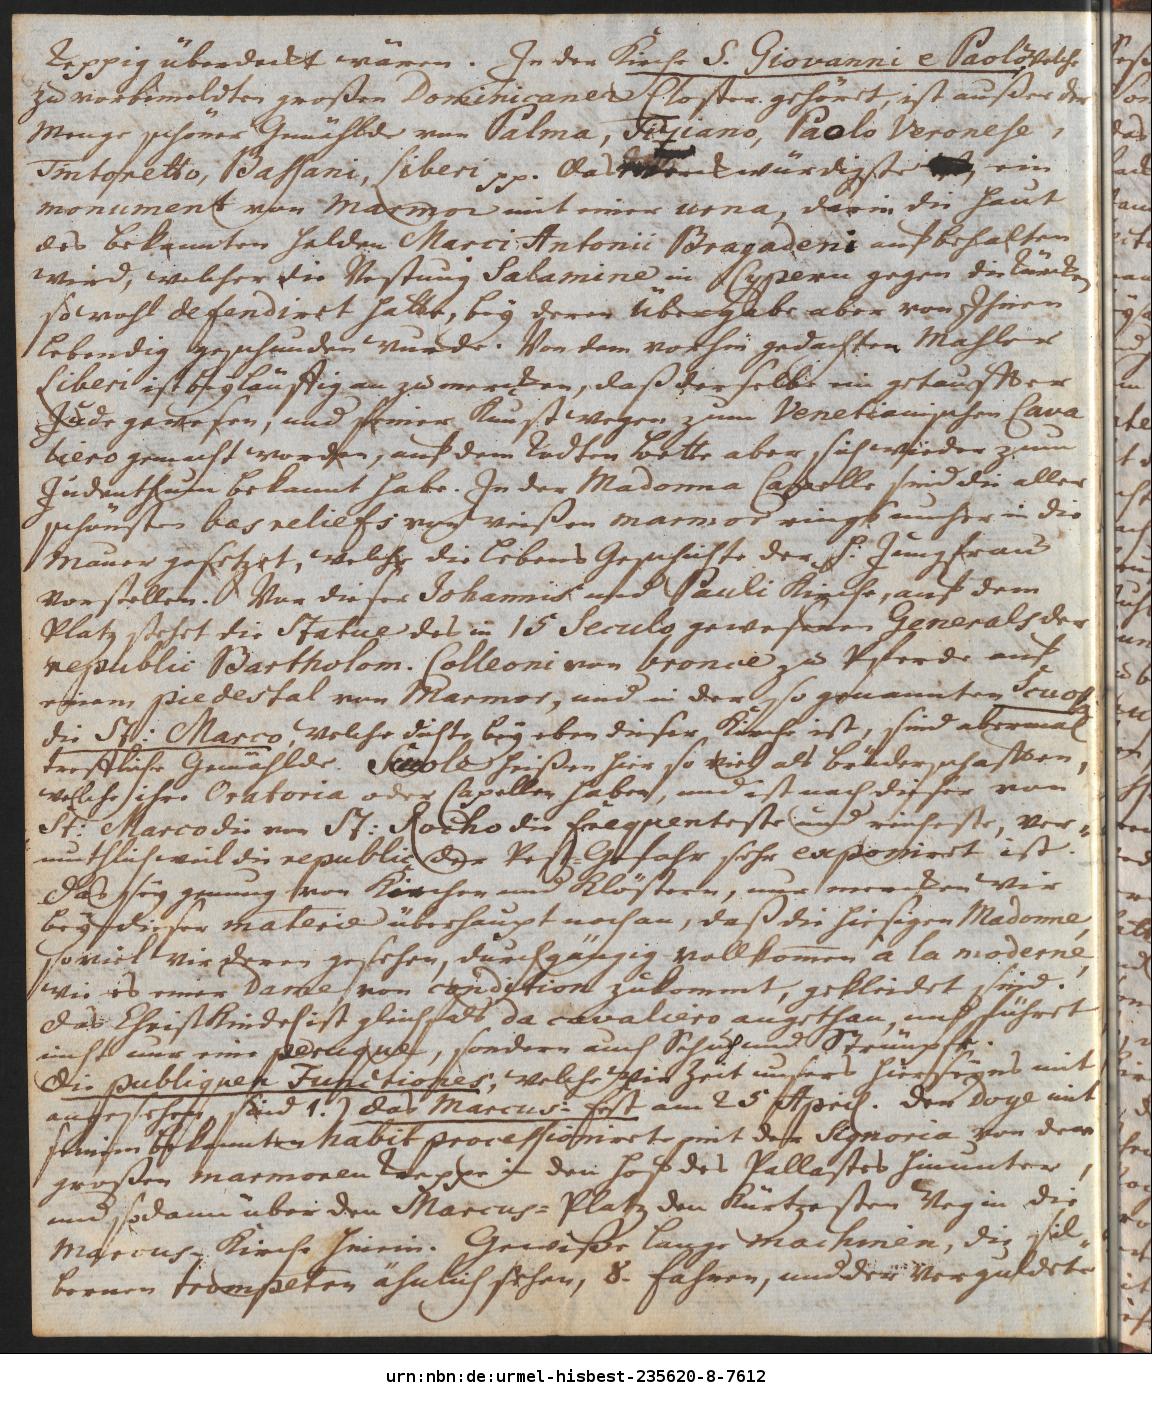 Teppig überdeckt wären. In der Kirche S. Giovanni e Paolo, welche
zu vorbemeldten großen Dominicaner Closter gehöret, ist außer der
Menge schöner Gemählde von Palma, Titziano, Paolo Veronese,
Tintoretto, Bassani, Liberi pp. das würdigste ein
monument von Marmor mit einer urna, darin die Haut
des bekannten Helden Marci Antonii Bragadeni aufbehalten
wird, welcher die Vestung Salamine in Cypern gegen die Türcken
so wohl defendiret hatte, bey deren Übergabe aber von Ihnen
lebendig geschunden wurde. Von dem vorhin gedachten Mahler
Liberi ist beyläuffig an zu mercken, daß derselbe ein getauffter
Jude gewesen, und seiner Kunst wegen zum Venetianischen Cava
liero gemacht worden, auf dem Todten bette aber sich wieder zum
Judenthum bekannt habe. In der Madonna Capelle sind die aller
schönsten bas reliefs von weißen marmor rings umher in die
Mauer gesetzet, welche die Lebens Geschichte der H. Jungfrau
vorstellen. Vor dieser Johannis und Pauli Kirche, auf dem
Platz stehet die Statue des in 15 Seculo gewesenen Generals der
republic Bartholom. Colleoni von bronce zu Pferde auf
einem piedestal von Marmor, und in der so genannten Scuola
di St: Marco, welche dichte bey eben dieser Kirche ist, sind abermal
treffliche Gemählde. Scuola heißen hier so viel als brüderschafften,
welche ihre Oratoria oder Capellen haben, und ist nach dieser von
St: Marco die von St: Rocho die frequenteste und reicheste, ver-
muthlich weil die republic der Pest-Gefahr sehr exponiret ist.
Das sey genung von Kirchen und Klöstern, nur mercken wir
bey dieser materie überhaupt noch an, daß die hiesigen Madonne,
so viel wir deren gesehen, durchgängig vollkom̅en à la moderne,
wie es einer Dame von condition zukommt, gekleidet sind.
Das Christ Kindel ist gleichfals da cavaliero angethan, und führet
nicht nur eine peruque, sondern auch Schuh und Strümpfe.
Die publiquen Functiones, welche wir Zeit unsers Hierseyns mit
angesehen, sind 1.) das Marcus-Fest am 25 April. Der Doge mit
seinem bekannten habit processionirte mit der Signoria von der
großen marmoren Treppe in den Hof des Pallastes hinunter,
und sodann über den Marcus-Platz den Kürtzesten Weg in die
Marcus-Kirche hinein. Gewiße lange machinen, die sil-
bernen trompeten ähnlich sehen, 8. Fahnen, und der verguldete
urn:nbn:de:urmel-hisbest-235620-8-7612